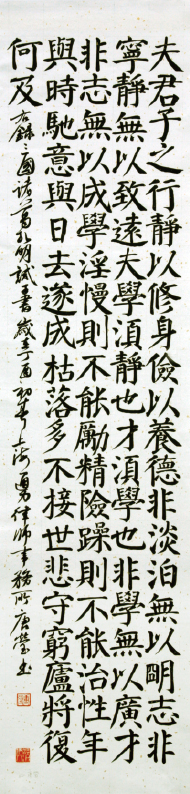 夫君子之行靜以修身儉以養德非淡泊無以明志非
寧靜無以致遠夫學湏靜也才湏學也非學無以廣才
非志無以成學淫慢則不能勵精險躁則不能治性年
與時馳意與日去遂成枯落多不接世悲守窮廬將復
何及 右錄三國诸葛孔明誡書歲丁酉初上海律师事務所唐瑩书